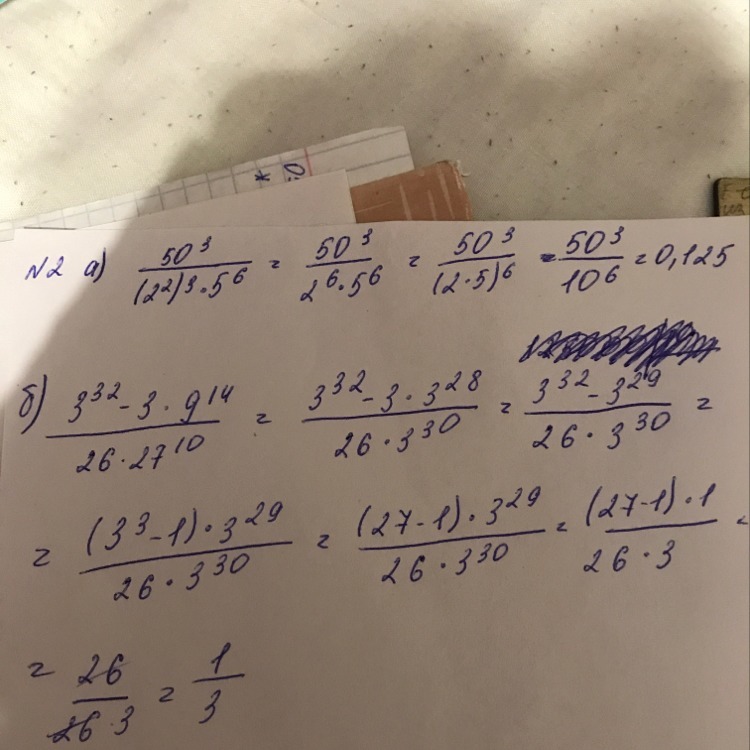 N2 а) 50³/((2²)³·5⁶) = 50³/(2⁶·5⁶) = 50³/(2·5)⁶ = 50³/10⁶ = 0,125
б) (3³² - 3·9¹⁴)/(26·27¹⁰) = (3³² - 3·3²⁸)/(26·3³⁰) = (3³² - 3²⁹)/(26·3³⁰) =
= ((3³ - 1)·3²⁹)/(26·3³⁰) = ((27 - 1)·3²⁹)/(26·3³⁰) = ((27 - 1)·1)/(26·3) =
= 26/(26·3) = 1/3